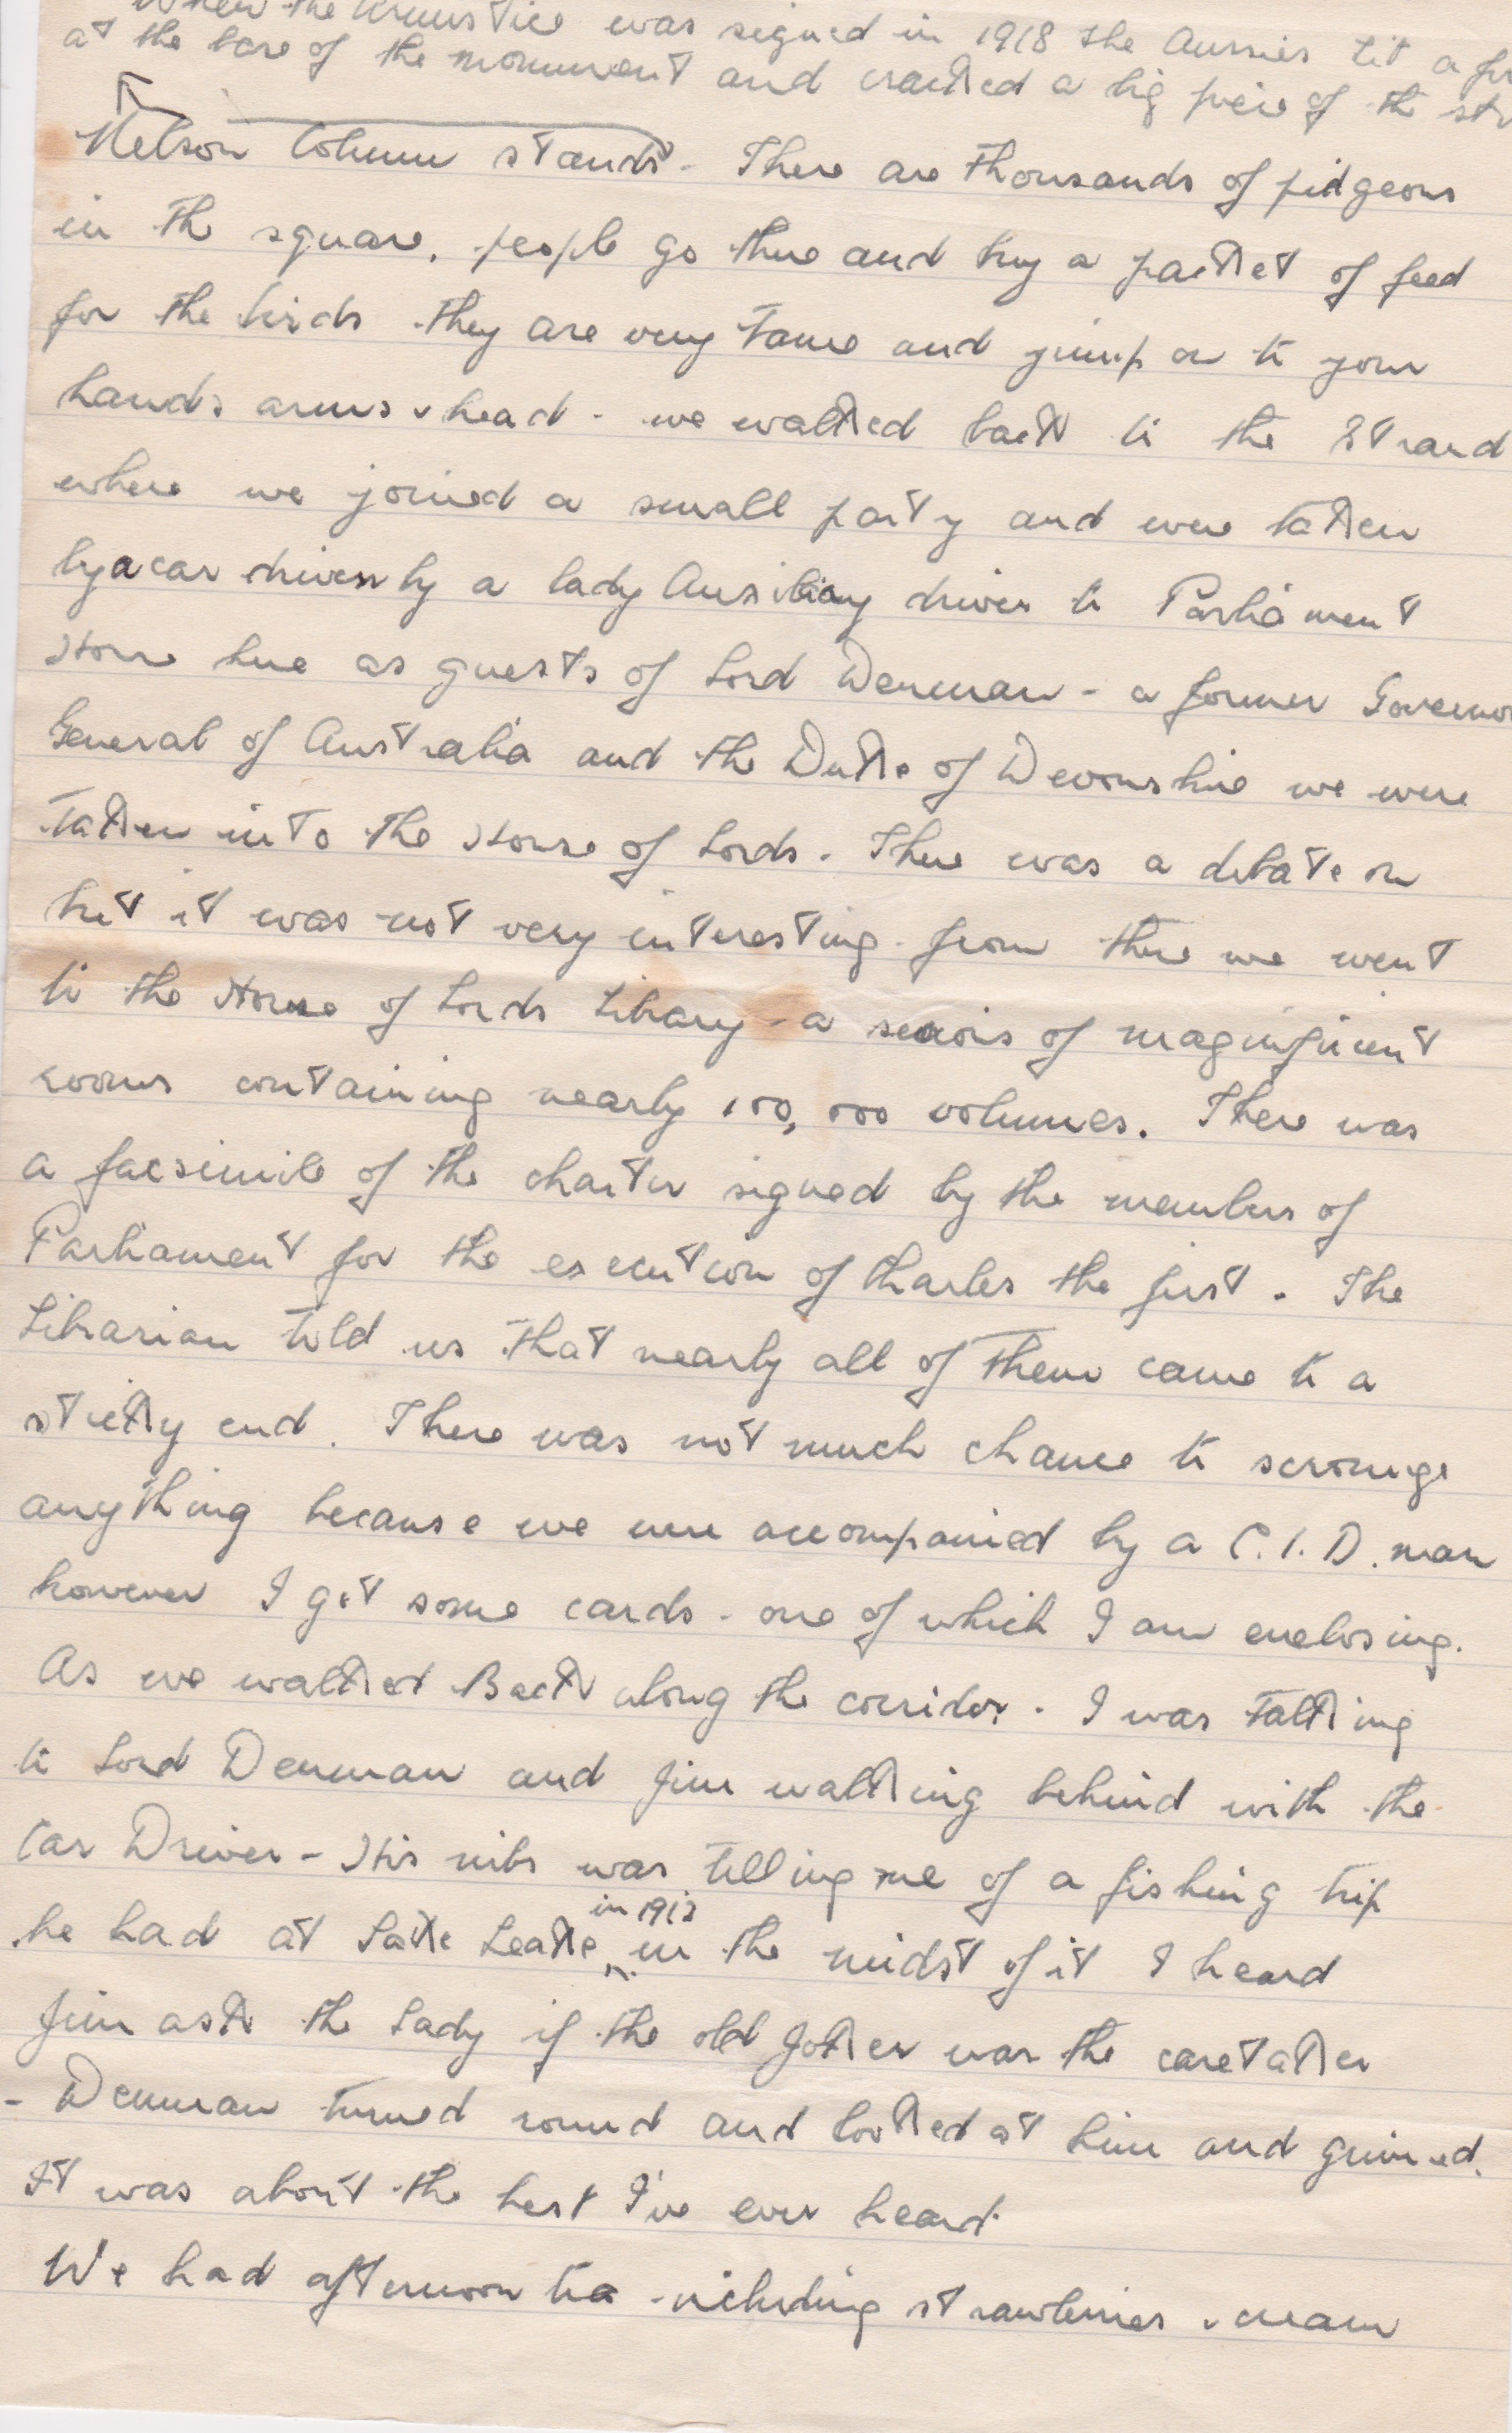 When the Armistice was signed in 1918 the Aussies lit a
at the base of the monument and cracked a big peice of the
Nelson Column stands. There are thousands of pidgeons
in the square, people go there and buy a packet of feed
for the birds they are very tame and jump on to your
hands arms & head. we walked back to the Strand
where we joined a small party and were taken
by a car driven by a lady Auxiliary driver to Parliament
House here as guests of Lord Denman - a former Governor
General of Australia and the Duke of Devonshire we were
taken into the House of Lords. There was a debate on
but it was not very interesting. from there we went
to the House of Lords Library - a of magnificent
rooms containing nearly 100,000 volumes. There was
a facsimile of the charter signed by the members of
Parliament for the execution of Charles the first. The
Librarian told us that nearly all of them came to a
sticky end. There was not much chance to scrounge
anything because we were accompanied by a C.I.D. man
however I got some cards - one of which I am enclosing.
As we walked Back along the corridor. I was talking
to Lord Denman and Jim walking behind with the
Car Driver - His nibs was telling me of a fishing trip
in 1912
he had at Lake Leake in the midst of it I heard
Jim ask the Lady if the old Joker was the caretaker
- Denman turned round and looked at him and grinned.
It was about the best I've ever heard.
We had afternoon tea - including strawberries & cream